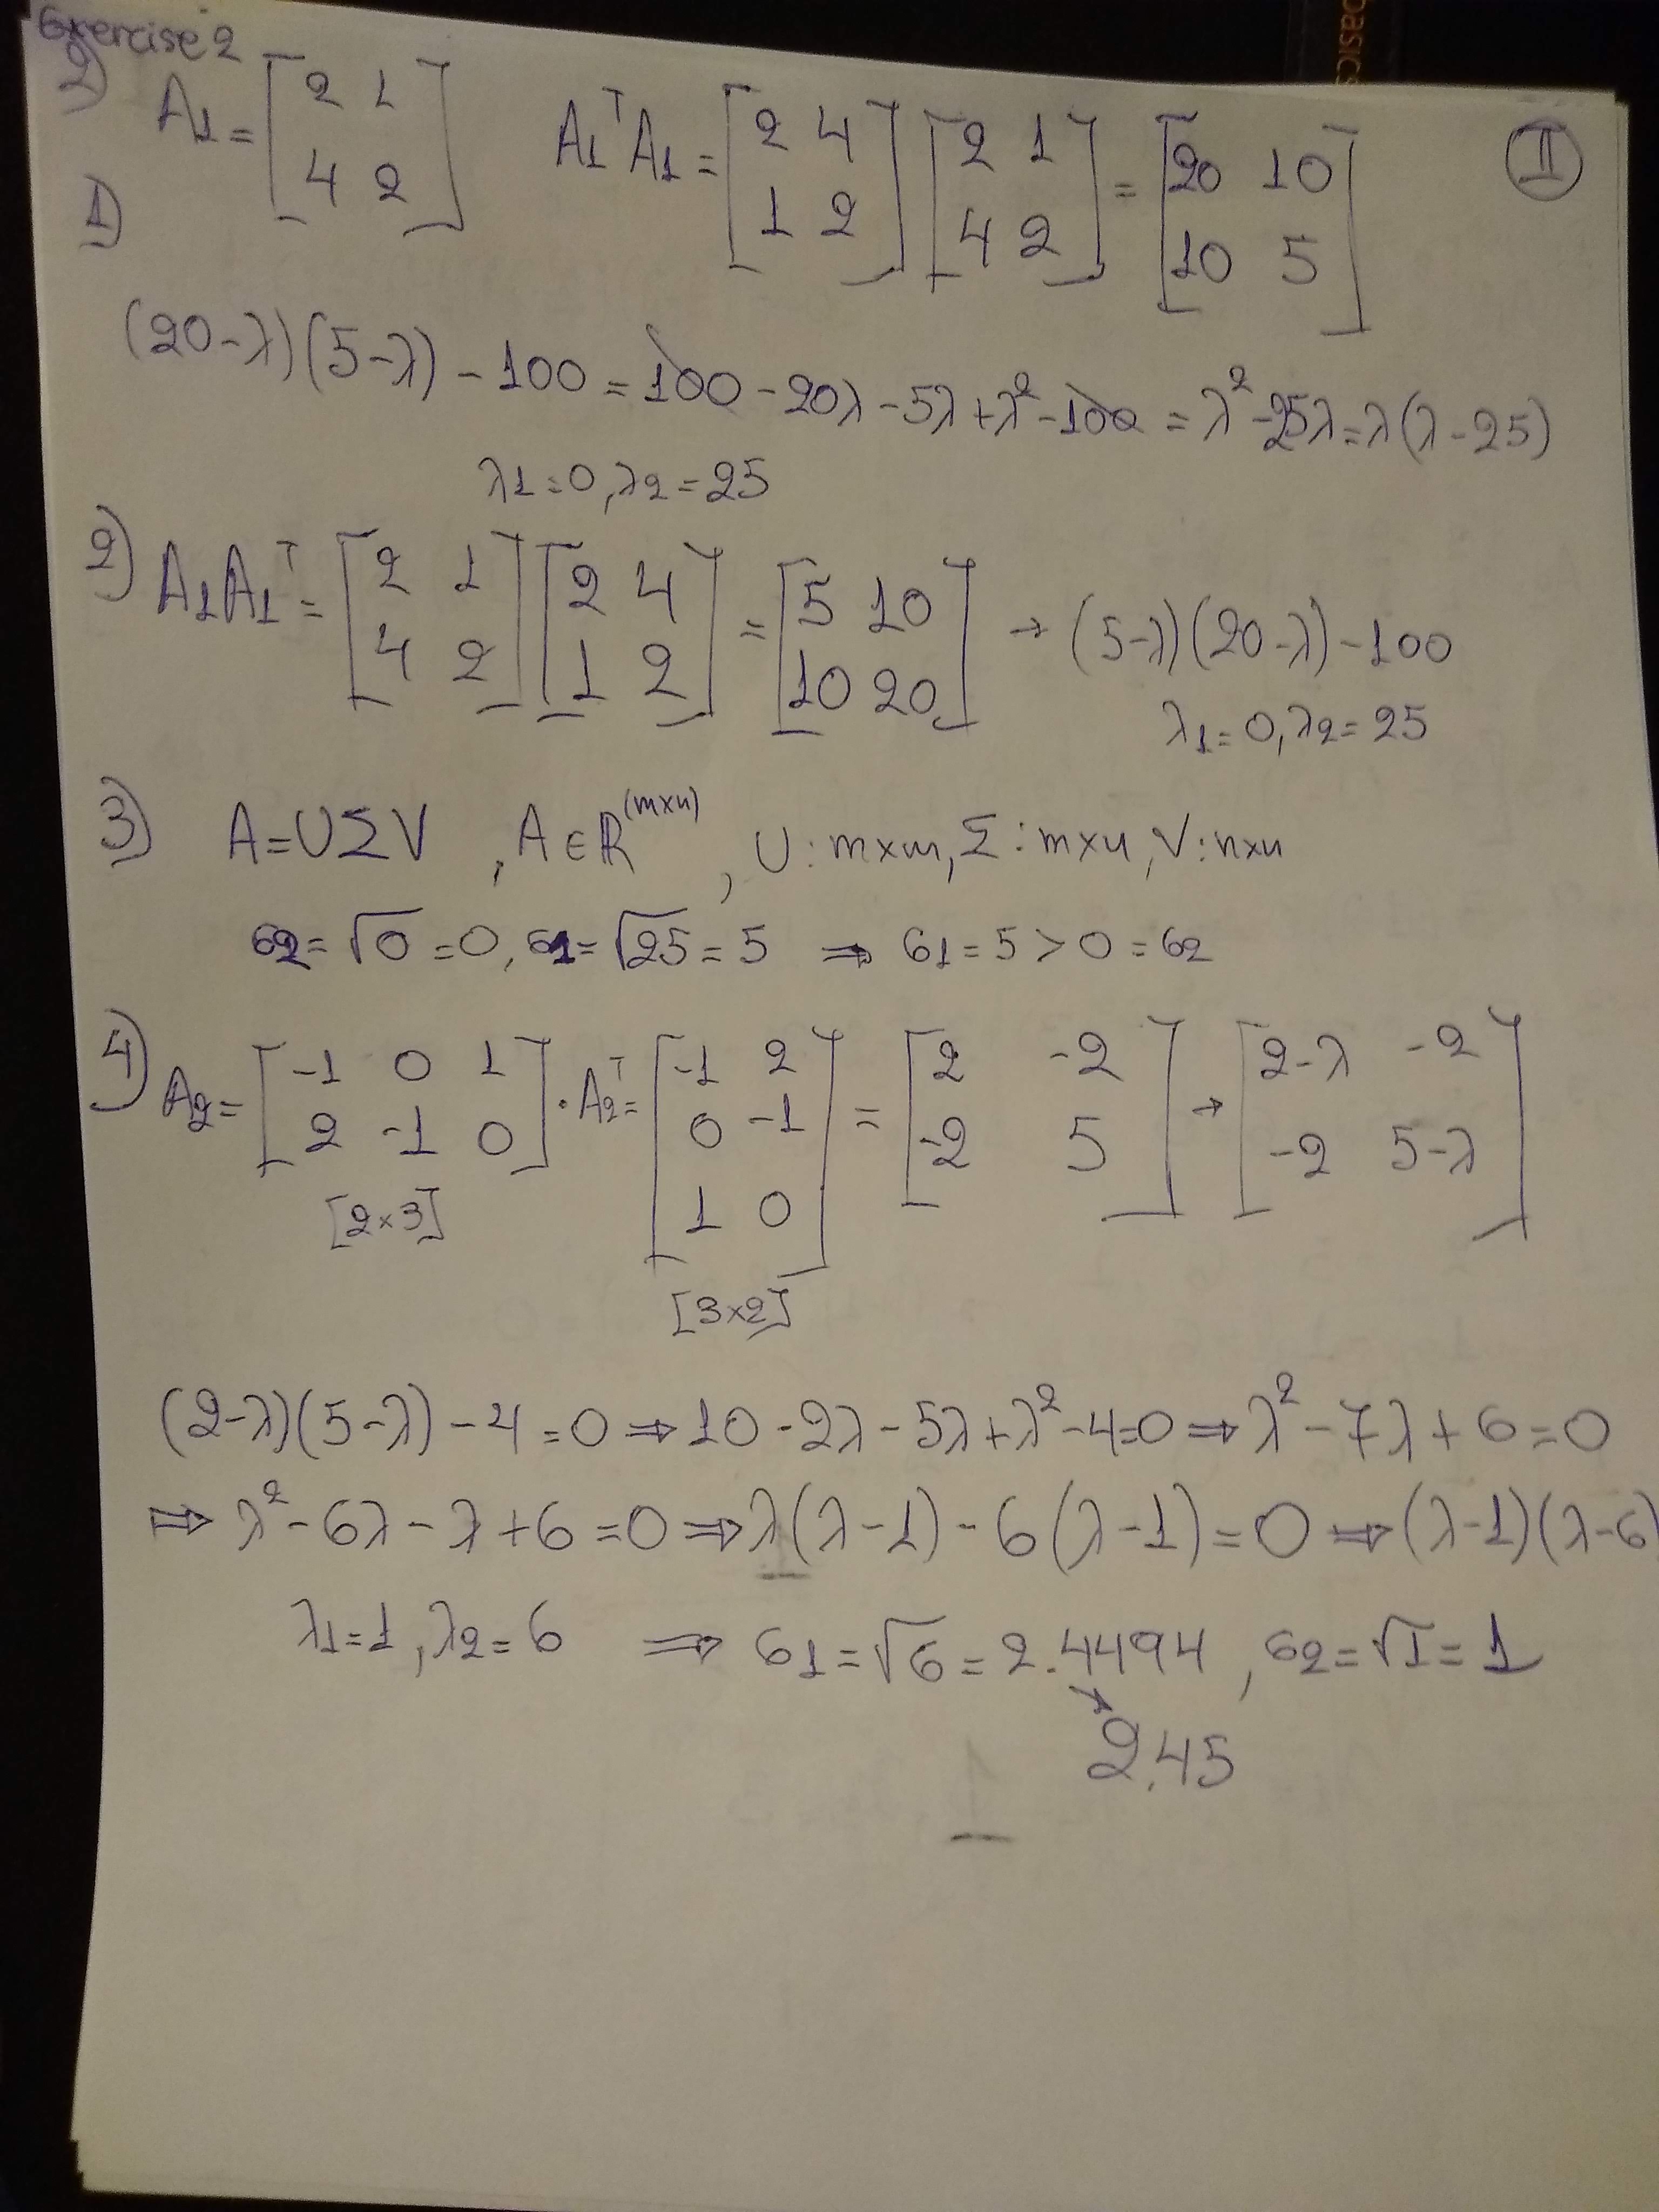 Exercise 2
2) A1 = [2 1; 4 2]   A1ᵀA1 = [2 4; 1 2] [2 1; 4 2] = [20 10; 10 5]   II
1)
(20-λ)(5-λ) - 100 = 100 - 20λ - 5λ + λ² - 100 = λ² - 25λ = λ(λ - 25)
λ1 = 0, λ2 = 25
2) A1A1ᵀ = [2 1; 4 2] [2 4; 1 2] = [5 10; 10 20] → (5-λ)(20-λ) - 100
λ1 = 0, λ2 = 25
3) A = UΣV , A ∈ ℝ^(m×n) , U : m×m, Σ : m×n, V : n×n
σ2 = √0 = 0, σ1 = √25 = 5 ⇒ σ1 = 5 > 0 = σ2
4) A2 = [-1 0 1; 2 -1 0] · A2ᵀ = [-1 2; 0 -1; 1 0] = [2 -2; -2 5] → [2-λ -2; -2 5-λ]
[2×3]
[3×2]
(2-λ)(5-λ) - 4 = 0 ⇒ 10 - 2λ - 5λ + λ² - 4 = 0 ⇒ λ² - 7λ + 6 = 0
⇒ λ² - 6λ - λ + 6 = 0 ⇒ λ(λ - 1) - 6(λ - 1) = 0 ⇒ (λ-1)(λ-6)
λ1 = 1, λ2 = 6 ⇒ σ1 = √6 = 2.4494, σ2 = √1 = 1
2.45
basics